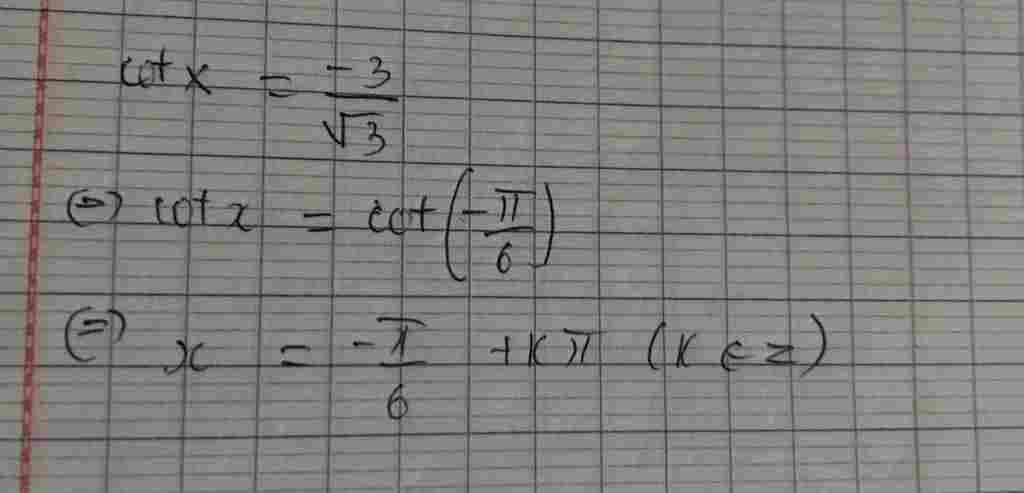 cot x = -3/√3
(=) cot x = cot(-π/6)
(=) x = -π/6 + kπ (k ∈ z)